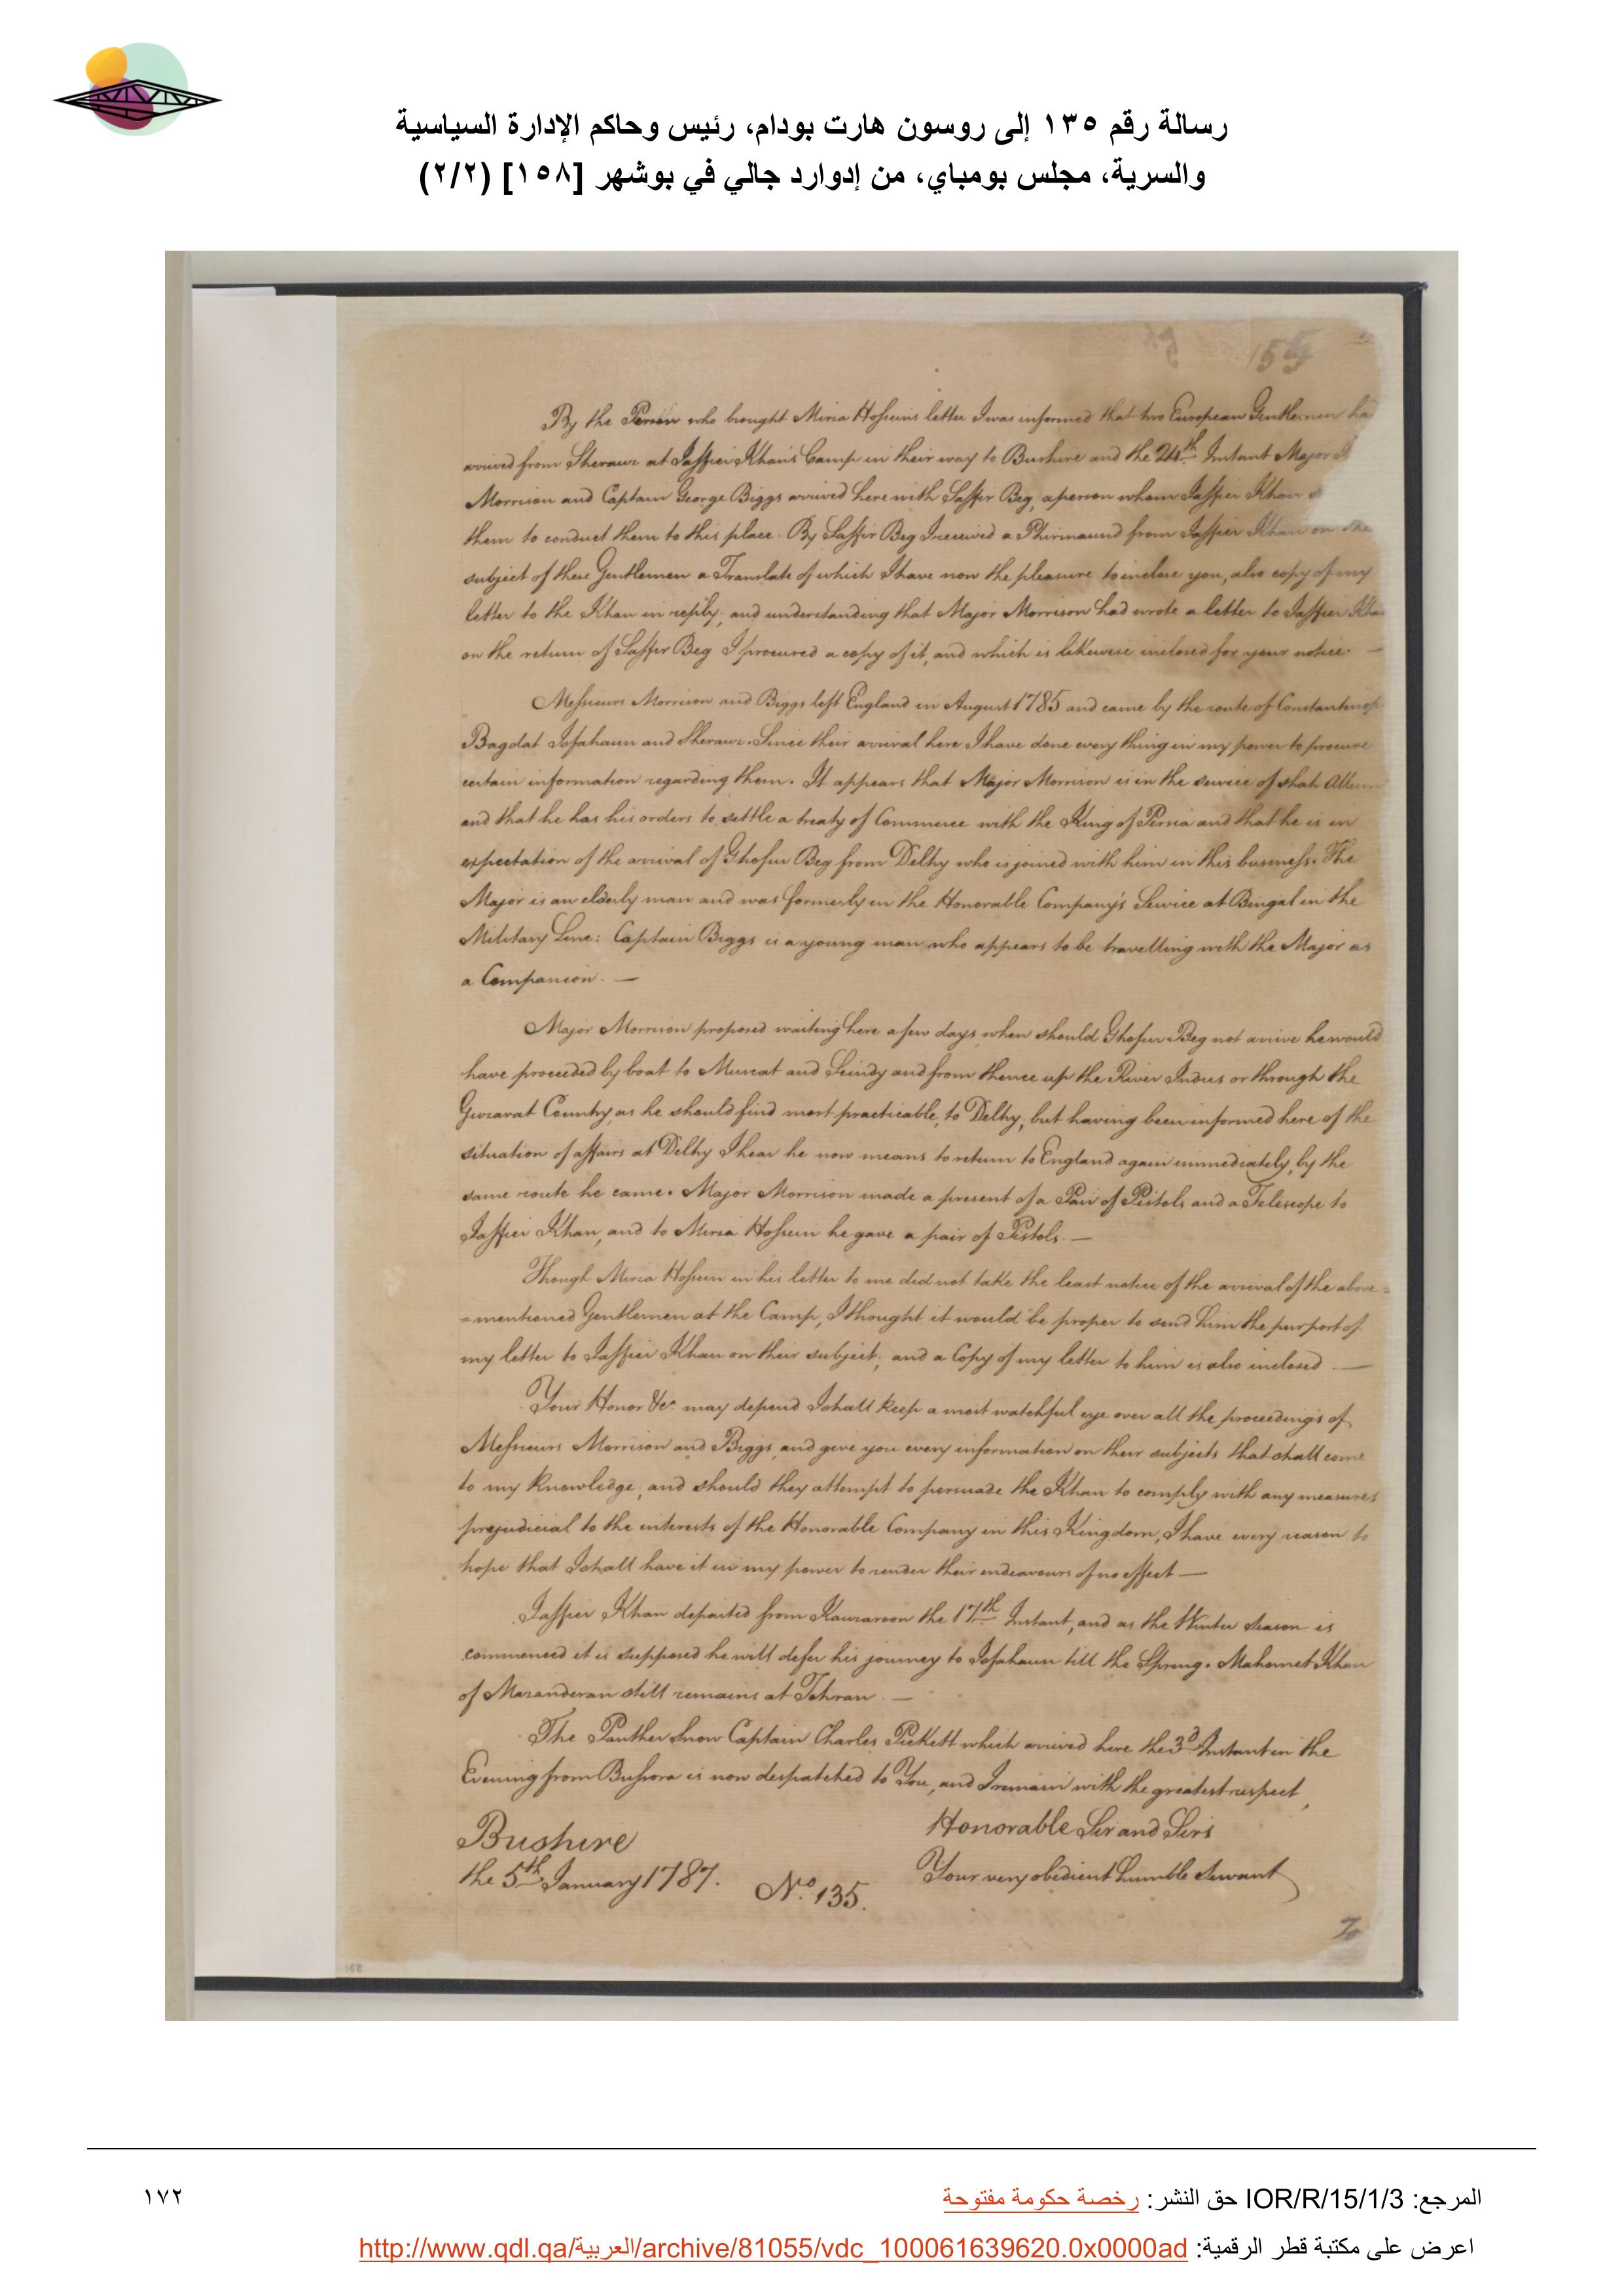 رسالة رقم ١٣٥ إلى روسون هارت بودام، رئيس وحاكم الإدارة السياسية
والسرية، مجلس بومباي، من إدوارد جالي في بوشهر [١٥٨] (٢/٢)
By the Person who brought Mirza Hossein's letter I was informed that two European Gentlemen ha
arrived from Sherauz at Jaffier Khan's Camp in their way to Bushire and the 24th Instant Major
Morrison and Captain George Biggs arrived here with Saffir Beg, a person whom Jaffier Khan
them to conduct them to this place. By Saffir Beg I received a Phirmaund from Jaffier Khan on the
subject of these Gentlemen a Translate of which I have now the pleasure to inclose you, also copy of my
letter to the Khan in reply; and understanding that Major Morrison had wrote a letter to Jaffier Khan
on the return of Saffir Beg I procured a copy of it, and which is likewise inclosed for your notice. —
Messieurs Morrison and Biggs left England in August 1785 and came by the route of Constantinop
Bagdat Isfahaun and Sherauz. Since their arrival here I have done every thing in my power to procure
certain information regarding them. It appears that Major Morrison is in the service of Shah Allum
and that he has his orders to settle a treaty of Commerce with the King of Persia and that he is in
expectation of the arrival of Ghofur Beg from Delhy who is joined with him in this business. The
Major is an elderly man and was formerly in the Honorable Company's Service at Bengal in the
Military Line: Captain Biggs is a young man who appears to be travelling with the Major as
a Companion. —
Major Morrison proposed waiting here a few days when should Ghofur Beg not arrive he would
have proceeded by boat to Muscat and Scindy and from thence up the River Indus or through the
Guzarat Country, as he should find most practicable, to Delhy, but having been informed here of the
situation of affairs at Delhy I hear he now means to return to England again immediately, by the
same route he came. Major Morrison made a present of a Pair of Pistols and a Telescope to
Jaffier Khan, and to Mirza Hossein he gave a pair of Pistols. —
Though Mirza Hossein in his letter to me did not take the least notice of the arrival of the above=
=mentioned Gentlemen at the Camp, I thought it would be proper to send him the purport of
my letter to Jaffier Khan on their subject; and a Copy of my letter to him is also inclosed —
Your Honor &ca may depend I shall keep a most watchful eye over all the proceedings of
Messieurs Morrison and Biggs, and give you every information on their subjects that shall come
to my knowledge; and should they attempt to persuade the Khan to comply with any measures
prejudicial to the interests of the Honorable Company in this Kingdom, I have every reason to
hope that I shall have it in my power to render their endeavours of no effect —
Jaffier Khan departed from Kauzaroon the 17th Instant, and as the Winter Season is
commenced it is supposed he will defer his journey to Isfahaun till the Spring. Mahomet Khan
of Mazanderan still remains at Tehran. —
The Panther Snow Captain Charles Pickett which arrived here the 3d Instant in the
Evening from Bussora is now despatched to You, and I remain with the greatest respect,
Honorable Sir and Sirs
Bushire
the 5th January 1787. No. 135.
Your very obedient humble Servant
To
168
المرجع: IOR/R/15/1/3 حق النشر: رخصة حكومة مفتوحة
١٧٢
اعرض على مكتبة قطر الرقمية: http://www.qdl.qa/العربية/archive/81055/vdc_100061639620.0x0000ad